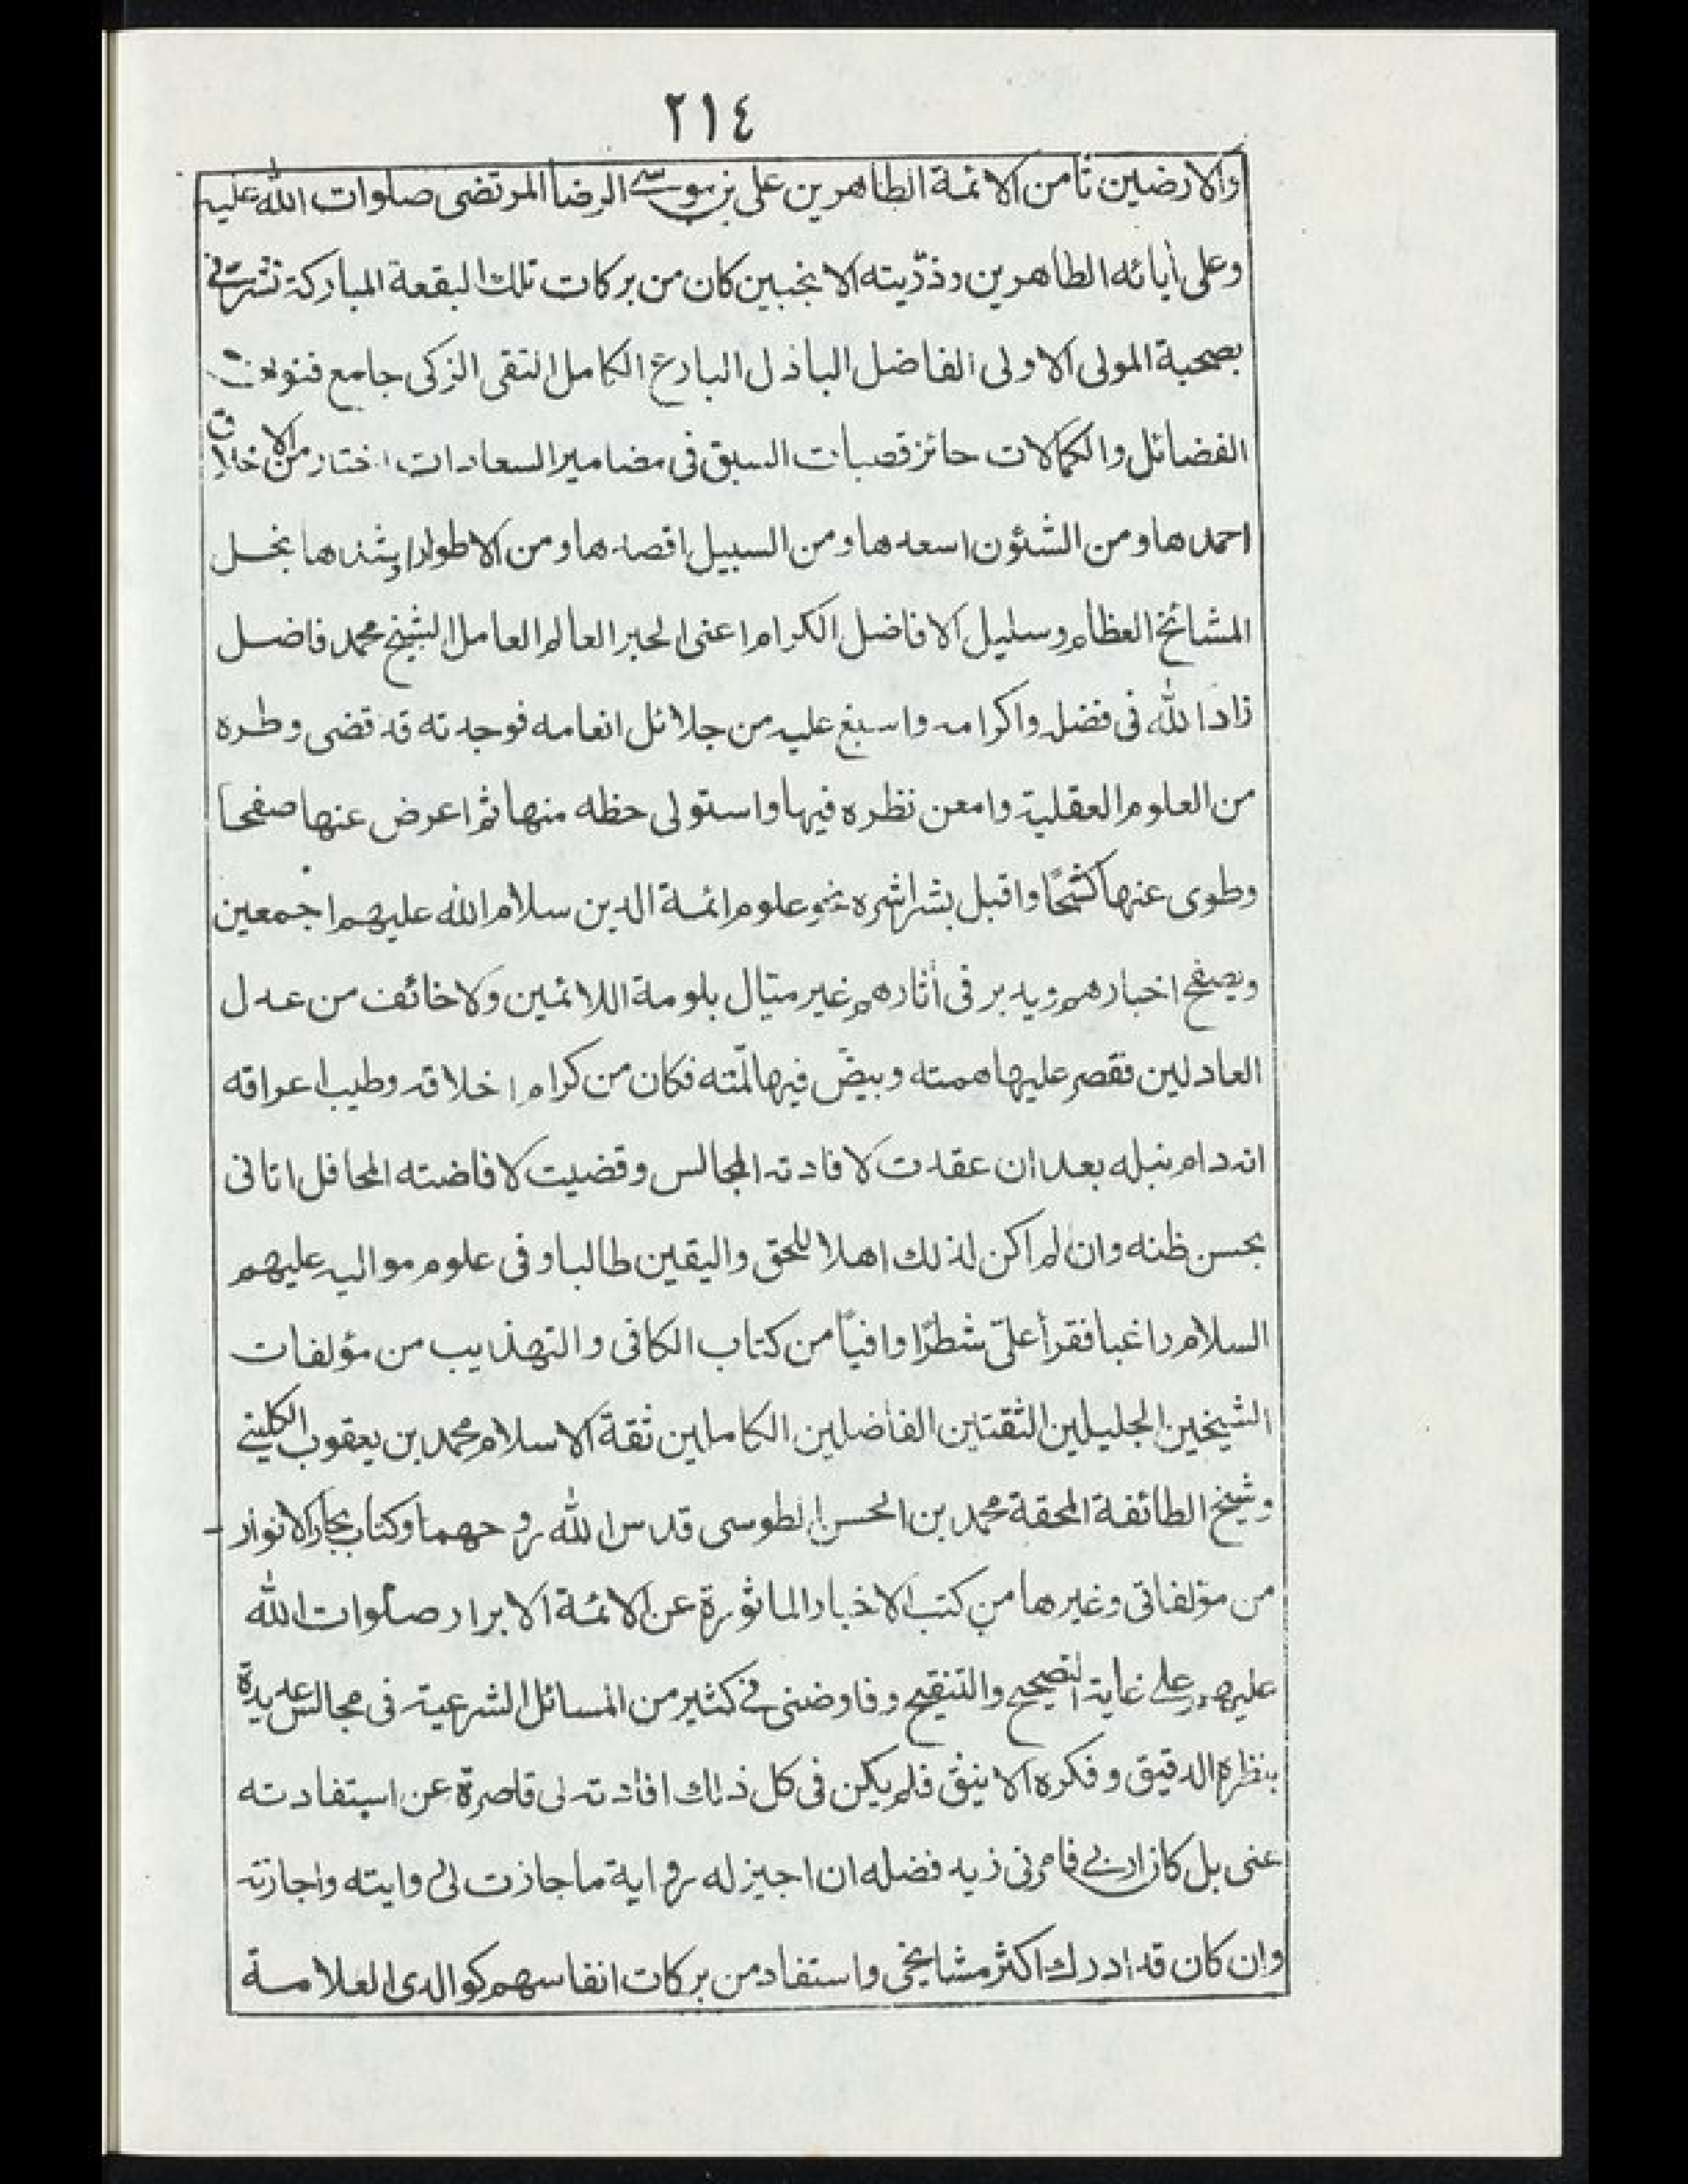 ٢١٤
والارضين ثامن الائمة الطاهرين على بن موسى الرضا المرتضى صلوات الله عليه
وعلى أبائه الطاهرين وذرّيته الانجبين كان من بركات تلك البقعة المباركة تشرفى
بصحبة المولى الاولى الفاضل الباذل البارع الكامل التقى الزكى جامع فنون
الفضائل والكمالات حائز قصبات السبق فى مضامير السعادات اختار من الاخلاق
احمدها ومن الشئون اسعدها ومن السبيل اقصدها ومن الاطوار ارشدها نجل
المشائخ العظام وسليل الافاضل الكرام اعنى الحبر العالم العامل الشيخ محمد فاضل
زاد الله فى فضله واكرامه واسبغ عليه من جلائل انعامه فوجدته قد قضى وطره
من العلوم العقلية وامعن نظره فيها واستولى حظه منها ثم اعرض عنها صفحا
وطوى عنها كشحًا واقبل بشراشره نحو علوم ائمة الدين سلام الله عليهم اجمعين
ويصفح اخبارهم ويدبر فى أثارهم غير متبال بلومة اللائمين ولا خائف من عدل
العادلين فقصر عليها همته وبيضّ فيها لمّته فكان من كرام اخلاقه وطيب اعراقه
انه دام نبله بعد ان عقدت لافادته المجالس وقضيت لافاضته المحافل اتانى
بحسن ظنه وان لم اكن لذلك اهلا للحق واليقين طالبا وفى علوم مواليه عليهم
السلام راغبا فقرأ علىّ شطرًا وافيًا من كتاب الكافى والتهذيب من مؤلفات
الشيخين الجليلين الثقتين الفاضلين الكاملين ثقة الاسلام محمد بن يعقوب الكلينى
وشيخ الطائفة المحقة محمد بن الحسن الطوسى قدس الله روحهما وكتاب بحار الانوار
من مؤلفاتى وغيرها من كتب الاخبار الماثورة عن الائمة الابرار صلوات الله
عليهم على غاية التصحيح والتنقيح وفاوضنى فى كثير من المسائل الشرعية فى مجالس عديدة
بنظره الدقيق وفكره الانيق فلم يكن فى كل ذلك افادته لى قاصرة عن استفادته
عنى بل كان اربى فامرنى زيد فضله ان اجيز له رواية ما جازت لى روايته واجازته
وان كان قد ادرك اكثر مشايخى واستفاد من بركات انفاسهم كوالدى العلامة